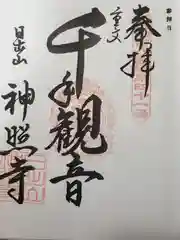 奉拝
重文
千手観音
日出山
神照寺